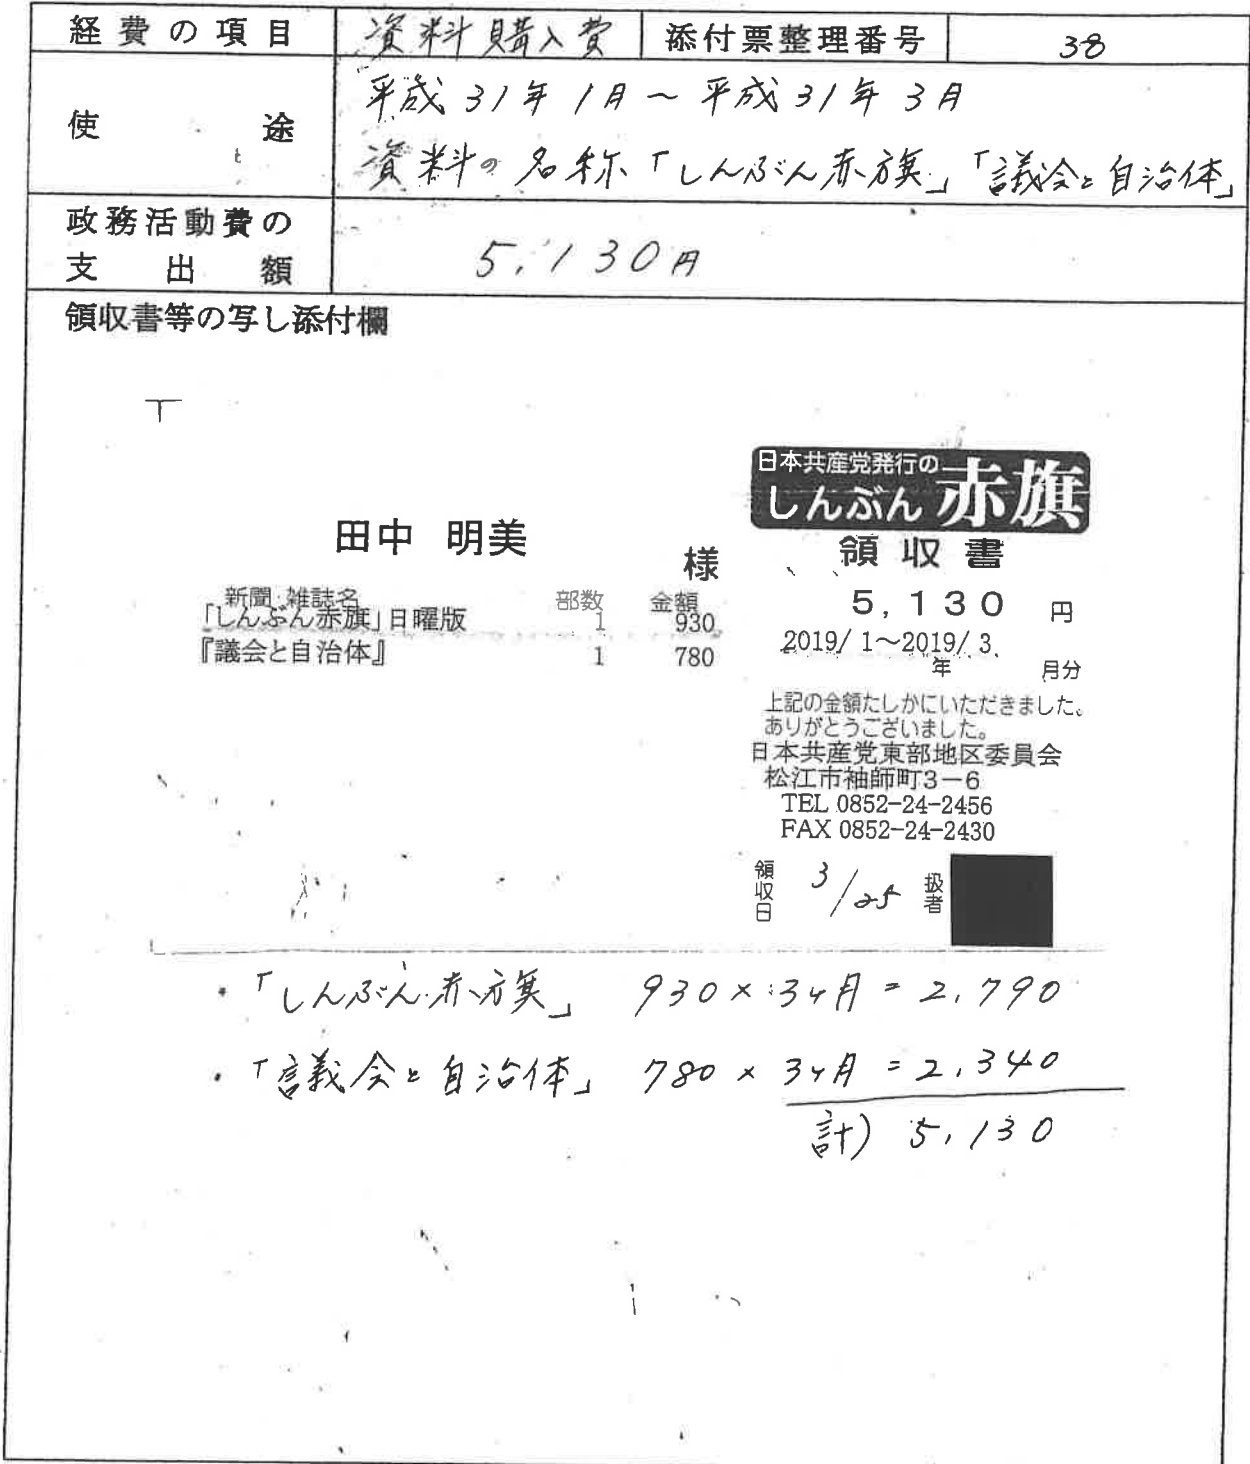 経費の項目 資料購入費 添付票整理番号 38
使途 平成31年1月～平成31年3月
資料の名称「しんぶん赤旗」「議会と自治体」
政務活動費の
支出額 5,130円
領収書等の写し添付欄
日本共産党発行の
しんぶん赤旗
領収書
田中 明美 様
新聞・雑誌名 部数 金額
「しんぶん赤旗」日曜版 1 930
『議会と自治体』 1 780
5,130 円
2019/ 1～2019/ 3
年 月分
上記の金額たしかにいただきました。
ありがとうございました。
日本共産党東部地区委員会
松江市袖師町3－6
TEL 0852-24-2456
FAX 0852-24-2430
領収日 3/25 扱者
・「しんぶん赤旗」 930×3ヶ月=2,790
・「議会と自治体」 780×3ヶ月=2,340
計) 5,130